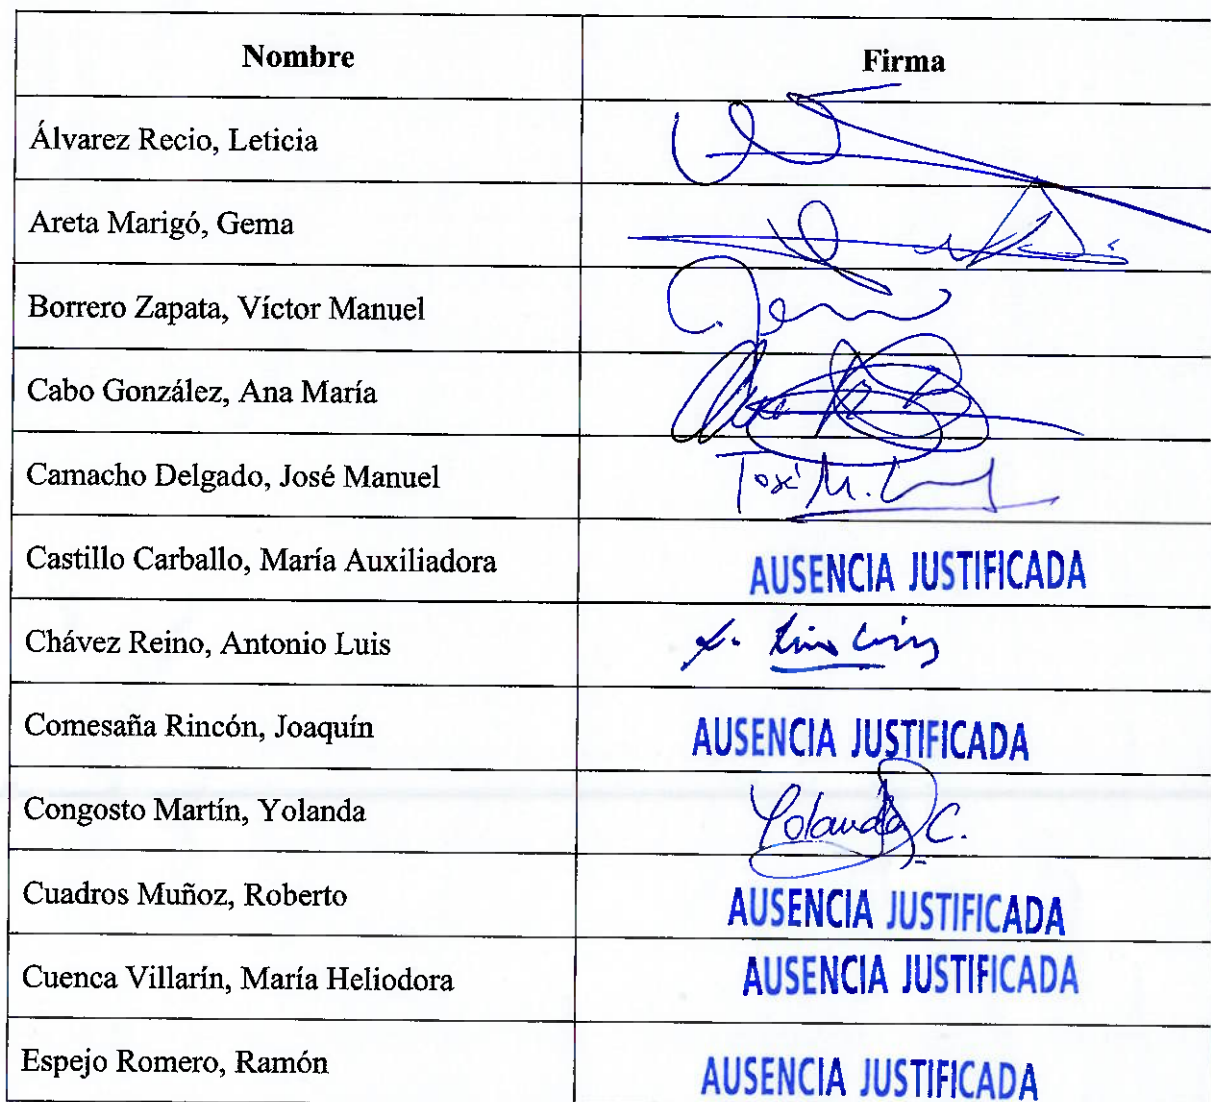 Nombre Firma
Álvarez Recio, Leticia
Areta Marigó, Gema
Borrero Zapata, Víctor Manuel
Cabo González, Ana María
Camacho Delgado, José Manuel José M.
Castillo Carballo, María Auxiliadora AUSENCIA JUSTIFICADA
Chávez Reino, Antonio Luis
Comesaña Rincón, Joaquín AUSENCIA JUSTIFICADA
Congosto Martín, Yolanda Yolanda C.
Cuadros Muñoz, Roberto AUSENCIA JUSTIFICADA
Cuenca Villarín, María Heliodora AUSENCIA JUSTIFICADA
Espejo Romero, Ramón AUSENCIA JUSTIFICADA